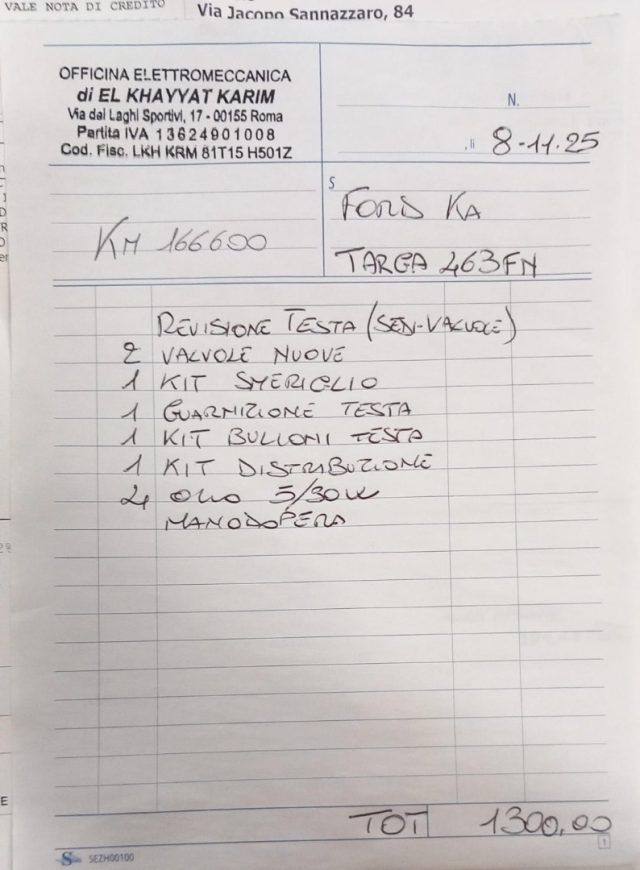 VALE NOTA DI CREDITO
Via Jacopo Sannazzaro, 84
OFFICINA ELETTROMECCANICA
di EL KHAYYAT KARIM
Via dei Laghi Sportivi, 17 - 00155 Roma
Partita IVA 13624901008
Cod. Fisc. LKH KRM 81T15 H501Z
N.
li 8-11.25
S
FORD KA
KM 166600
TARGA 463FN
REVISIONE TESTA (SEDI-VALVOLE)
2 VALVOLE NUOVE
1 KIT SMERIGLIO
1 GUARNIZIONE TESTA
1 KIT BULLONI TESTA
1 KIT DISTRIBUZIONE
4 OLIO 5/30W
MANODOPERA
TOT 1300,00
S SEZH00100
1